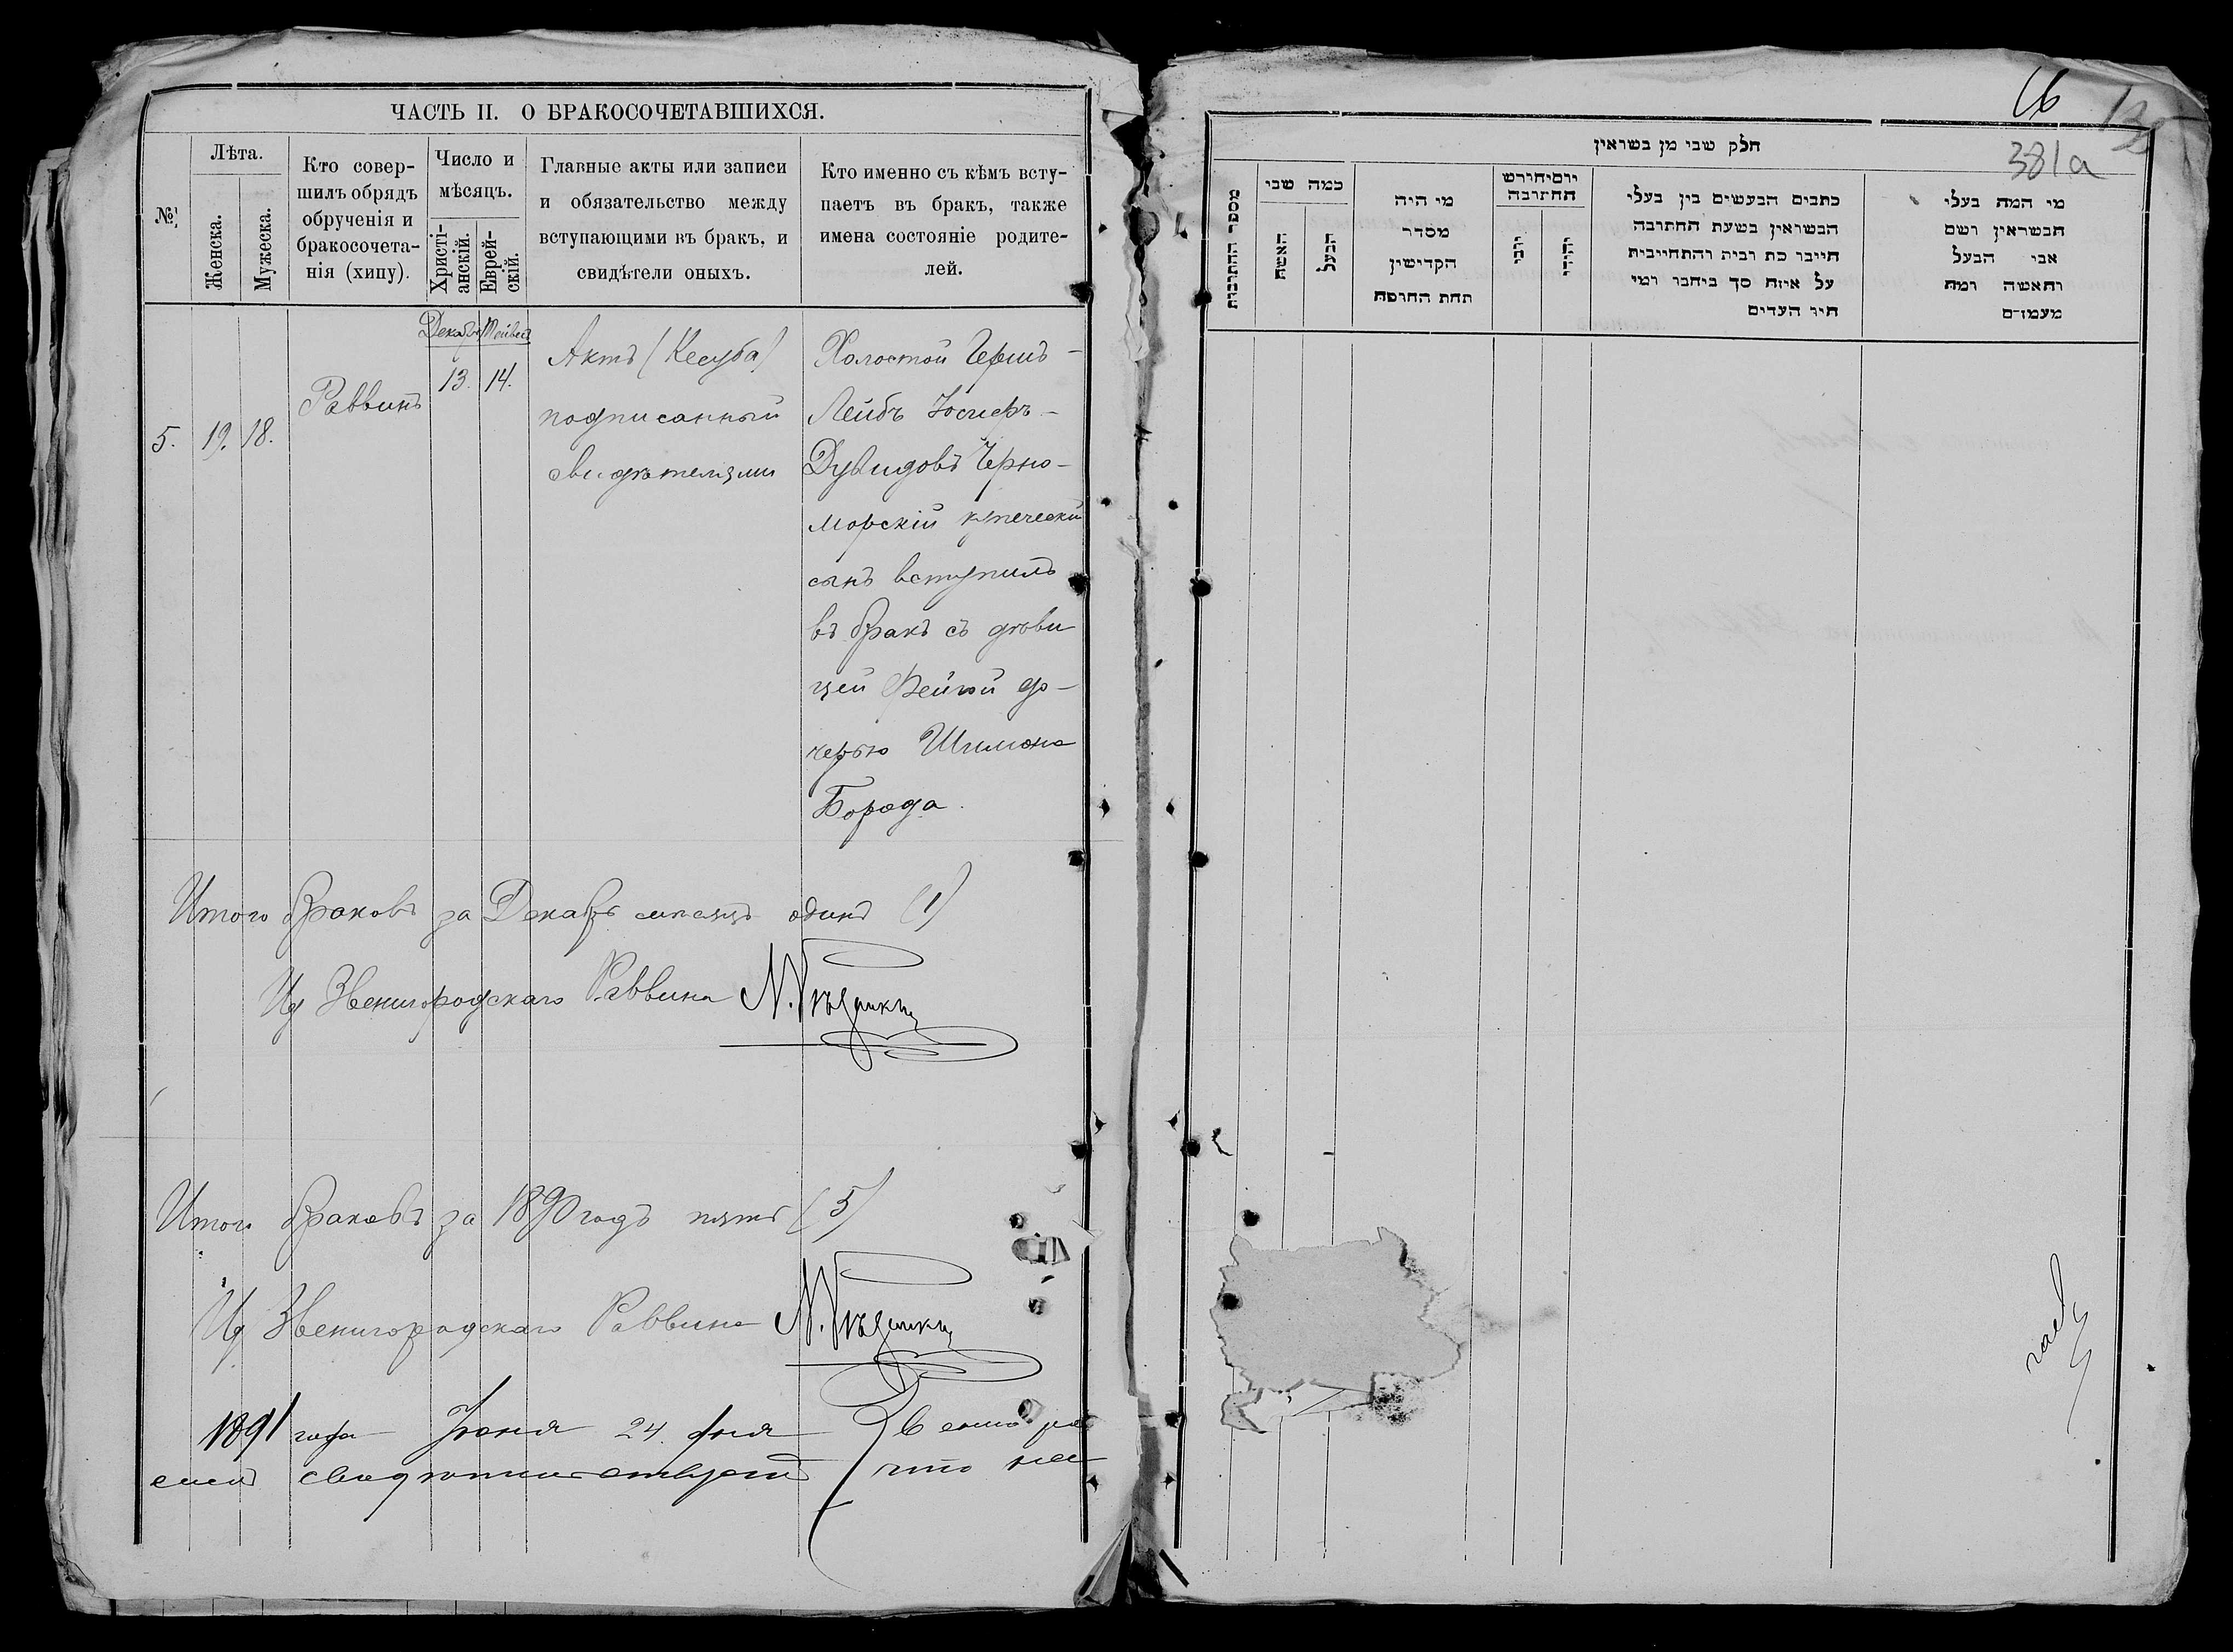 ЧАСТЬ II. О БРАКОСОЧЕТАВШИХСЯ.
№
Лѣта.
Женска.
Мужеска.
Кто совер-
шилъ обрядъ
обрученія и
бракосочета-
нія (хипу).
Число и
мѣсяцъ.
Христі-
анскій.
Еврей-
скій.
Главные акты или записи
и обязательство между
вступающими въ бракъ, и
свидѣтели оныхъ.
Кто именно съ кѣмъ всту-
паетъ въ бракъ, также
имена состояніе родите-
лей.
5.
19.
18.
Раввинъ
Декабрь
13.
Тейвесъ
14.
Актъ (Кесуба)
подписанный
свидѣтелями
Холостой Гершъ-
Лейбъ Іосифъ-
Дувидовъ Черно-
морскій купеческій
сынъ вступилъ
въ бракъ съ дѣви
цей Фейгой до-
черью Шимона
Борода.
Итого браковъ за Декабрь мѣсяцъ одинъ (1)
Ид Звенигородскаго Раввина
Итого браковъ за 1890 годъ пять (5)
Ид Звенигородскаго Раввина
1891 года Іюня 24 дня
что
16
381a
חלק שני מן בשראין
מספר החתונות
כמה שני
האשה
הבעל
מי היה
מסדר
הקדישין
תחת החופה
יום וחורש
החתונה
כתבים הנעשים בין בעלי
הנשואין בשעת החתונה
חייבו כת רבית והתחייבית
על איזה סך ביחבו ומי
היו העדים
מי המה בעלי
הנשראין ושם
אבי הבעל
והאשה ומה
מעמדם